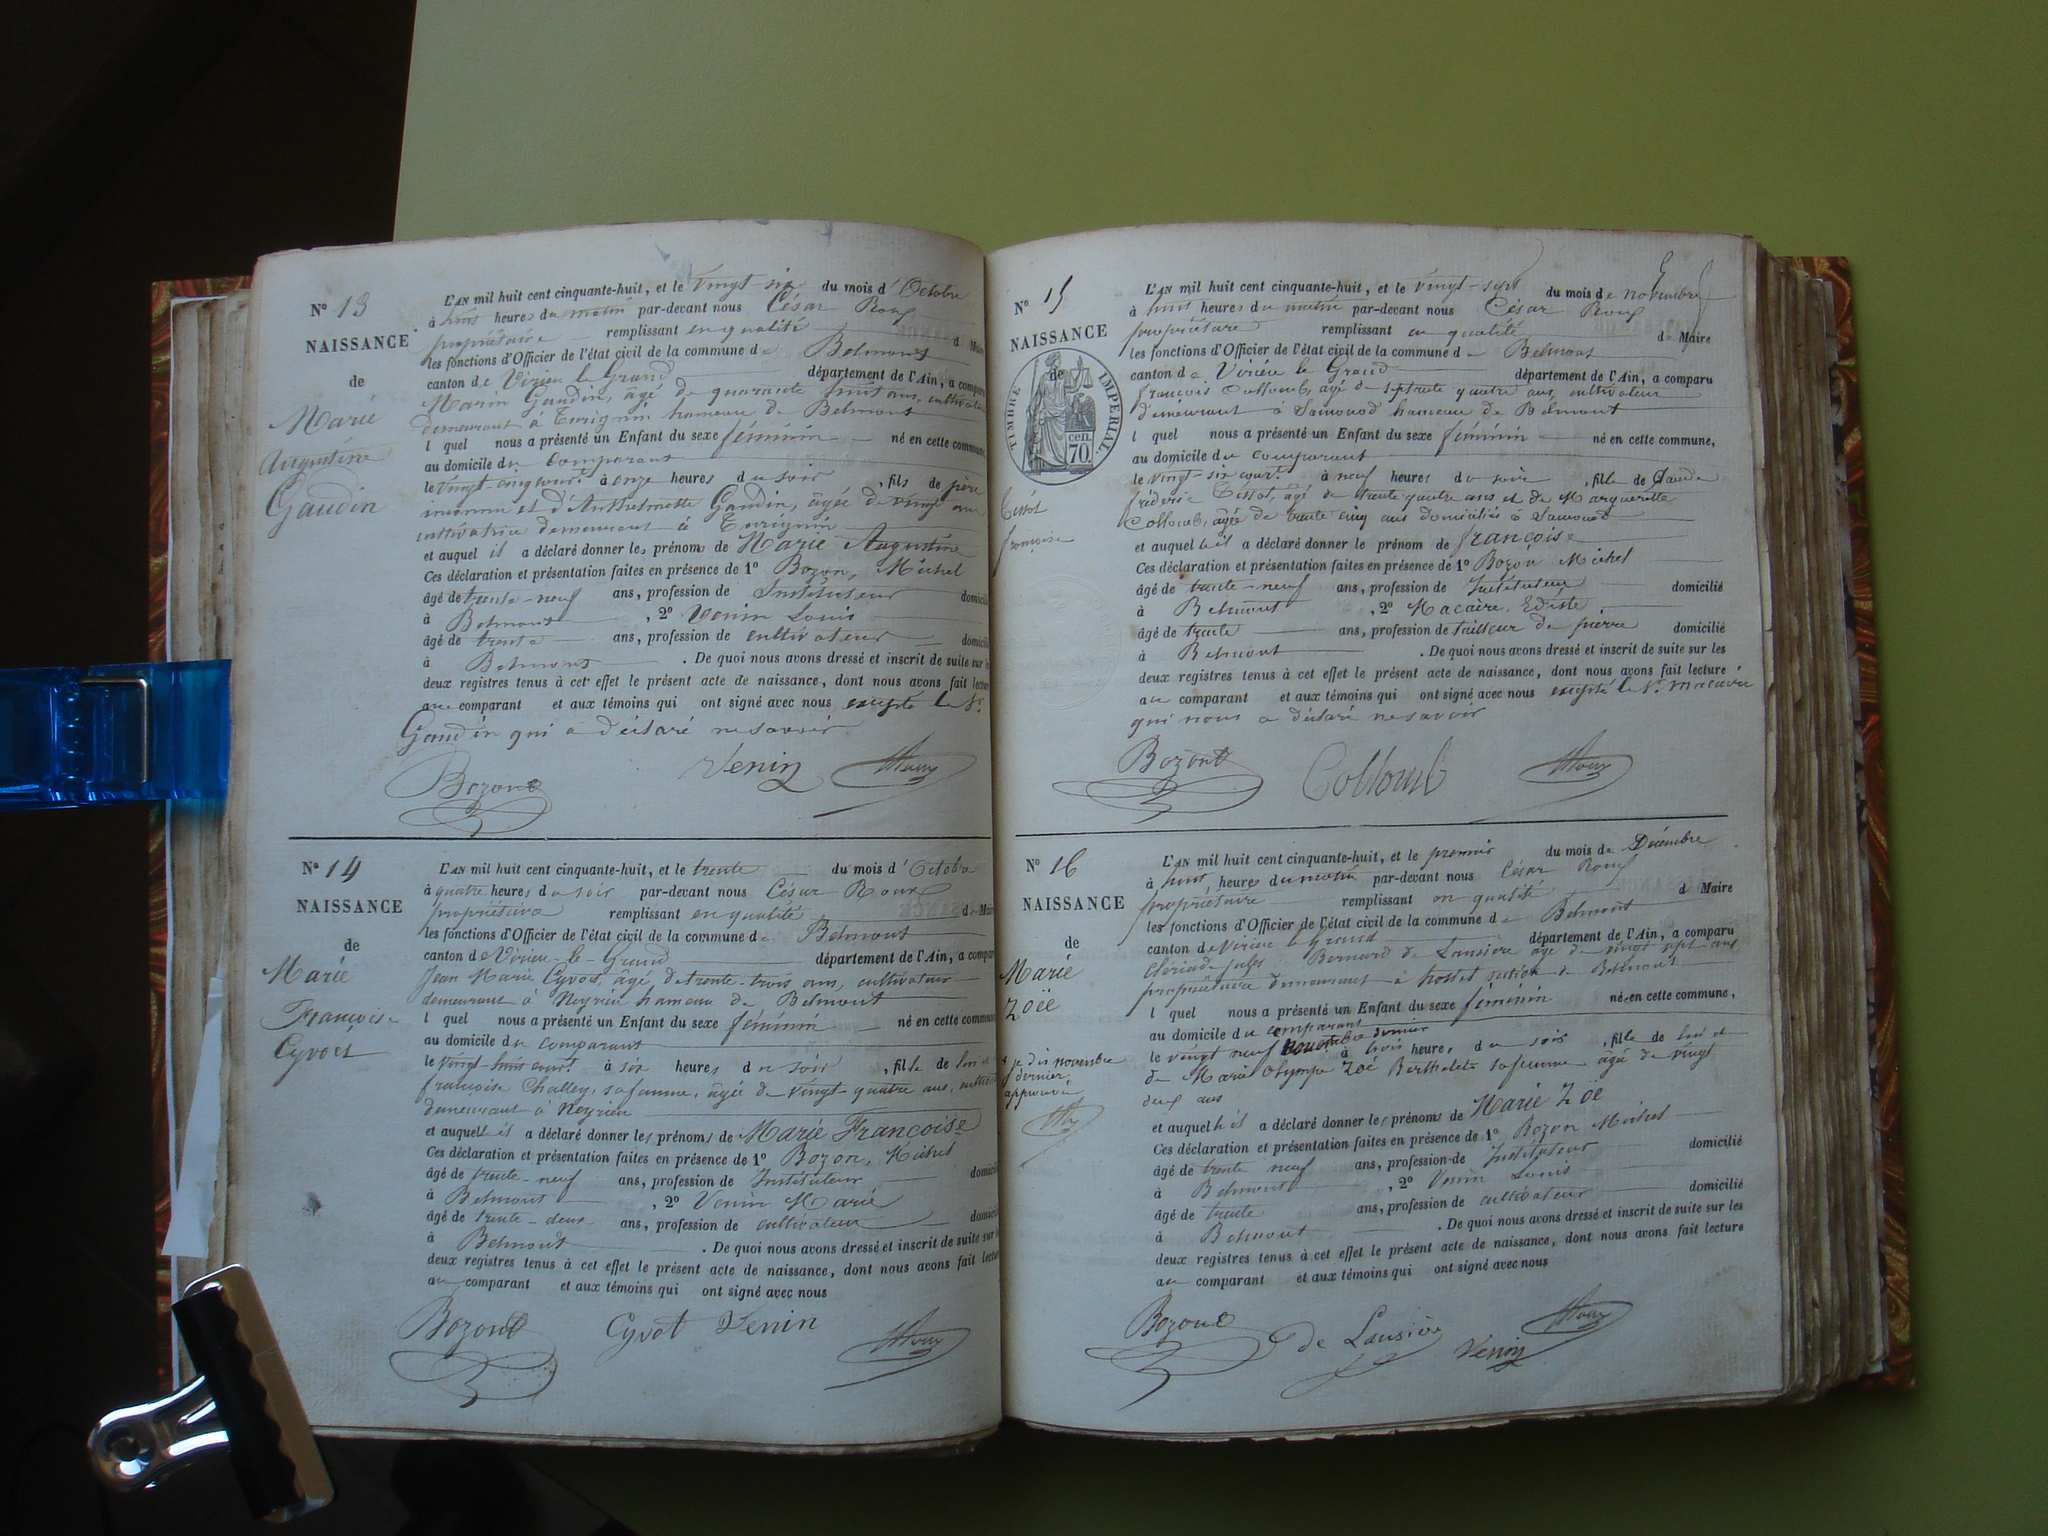 N° 13
NAISSANCE
de
Marie
Augustine
Gaudin
L'AN mil huit cent cinquante-huit, et le vingt-six du mois d'Octobre
à huit heures du matin par-devant nous César Roux
propriétaire remplissant en qualité de Maire
les fonctions d'Officier de l'état civil de la commune de Belmont
canton de Virieu le Grand département de l'Ain, a comparu
Marin Gaudin, âgé de quarante huit ans, cultivateur
demeurant à hameau de Belmont
lequel nous a présenté un Enfant du sexe féminin né en cette commune,
au domicile du comparant
le vingt-cinq court à onze heures du soir, fils de père
inconnu et d'Anthelmette Gaudin, âgée de vingt ans
cultivatrice demeurant à
et auquel il a déclaré donner les prénoms de Marie Augustine
Ces déclaration et présentation faites en présence de 1° Bozon, Michel
âgé de trente-neuf ans, profession de Instituteur domicilié
à Belmont, 2° Venin Louis
âgé de trente ans, profession de cultivateur domicilié
à Belmont. De quoi nous avons dressé et inscrit de suite sur les
deux registres tenus à cet effet le présent acte de naissance, dont nous avons fait lecture
au comparant et aux témoins qui ont signé avec nous excepté le Sr
Gaudin qui a déclaré ne savoir
Bozon Venin Roux
N° 14
NAISSANCE
de
Marie
Françoise
Cyvoct
L'AN mil huit cent cinquante-huit, et le trente du mois d'Octobre
à quatre heures du soir par-devant nous César Roux
propriétaire remplissant en qualité de Maire
les fonctions d'Officier de l'état civil de la commune de Belmont
canton de Virieu-le-Grand département de l'Ain, a comparu
Jean Marie Cyvoct, âgé de trente-trois ans, cultivateur
demeurant à Neyrieu hameau de Belmont
lequel nous a présenté un Enfant du sexe féminin né en cette commune
au domicile du comparant
le vingt-huit court à six heures du soir, fille de lui et
françoise Challey, sa femme, âgée de vingt quatre ans,
demeurant à Neyrieu
et auquel il a déclaré donner les prénoms de Marie Françoise
Ces déclaration et présentation faites en présence de 1° Bozon, Michel
âgé de trente-neuf ans, profession de Instituteur domicilié
à Belmont, 2° Venin Marie
âgé de trente-deux ans, profession de cultivateur domicilié
à Belmont. De quoi nous avons dressé et inscrit de suite sur les
deux registres tenus à cet effet le présent acte de naissance, dont nous avons fait lecture
au comparant et aux témoins qui ont signé avec nous
Bozon Cyvot Venin Roux
N° 15
NAISSANCE
de
TIMBRE IMPERIAL
cen.
70
Tissot
françoise
L'AN mil huit cent cinquante-huit, et le vingt-sept du mois de novembre
à huit heures du matin par-devant nous César Roux
propriétaire remplissant en qualité de Maire
les fonctions d'Officier de l'état civil de la commune de Belmont
canton de Virieu le Grand département de l'Ain, a comparu
françois Collomb, âgé de septante quatre ans, cultivateur
demeurant à Samonod hameau de Belmont
lequel nous a présenté un Enfant du sexe féminin né en cette commune,
au domicile du comparant
le vingt-six court à neuf heures du soir, fille de Claude
fréderic Tissot, âgé de trente quatre ans et de Marguerite
Collomb, âgée de trente cinq ans domiciliés à Samonod
et auquel il a déclaré donner le prénom de françoise
Ces déclaration et présentation faites en présence de 1° Bozon Michel
âgé de trente-neuf ans, profession de Instituteur domicilié
à Belmont, 2° Macaire,
âgé de trente ans, profession de tailleur de pierre domicilié
à Belmont. De quoi nous avons dressé et inscrit de suite sur les
deux registres tenus à cet effet le présent acte de naissance, dont nous avons fait lecture
au comparant et aux témoins qui ont signé avec nous excepté le Sr Macaire
qui nous a déclaré ne savoir
Bozon Collomb Roux
N° 16
NAISSANCE
de
Marie
Zoë
je dis novembre
dernier
approuvé
L'AN mil huit cent cinquante-huit, et le premier du mois de Décembre
à huit heures du matin par-devant nous César Roux
propriétaire remplissant en qualité de Maire
les fonctions d'Officier de l'état civil de la commune de Belmont
canton de Virieu le Grand département de l'Ain, a comparu
Jules Bernard de Lausière âgé de vingt sept ans
propriétaire demeurant à section de Belmont
lequel nous a présenté un Enfant du sexe féminin né en cette commune,
au domicile du comparant
le vingt neuf novembre dernier à trois heures du soir, fille de lui et
de Marie Olympe Zoé Berthelet sa femme âgée de vingt
deux ans
et auquel il a déclaré donner les prénoms de Marie Zoë
Ces déclaration et présentation faites en présence de 1° Bozon Michel
âgé de trente neuf ans, profession de Instituteur domicilié
à Belmont, 2° Venin Louis
âgé de trente ans, profession de cultivateur domicilié
à Belmont. De quoi nous avons dressé et inscrit de suite sur les
deux registres tenus à cet effet le présent acte de naissance, dont nous avons fait lecture
au comparant et aux témoins qui ont signé avec nous
Bozon de Lausière Venin Roux